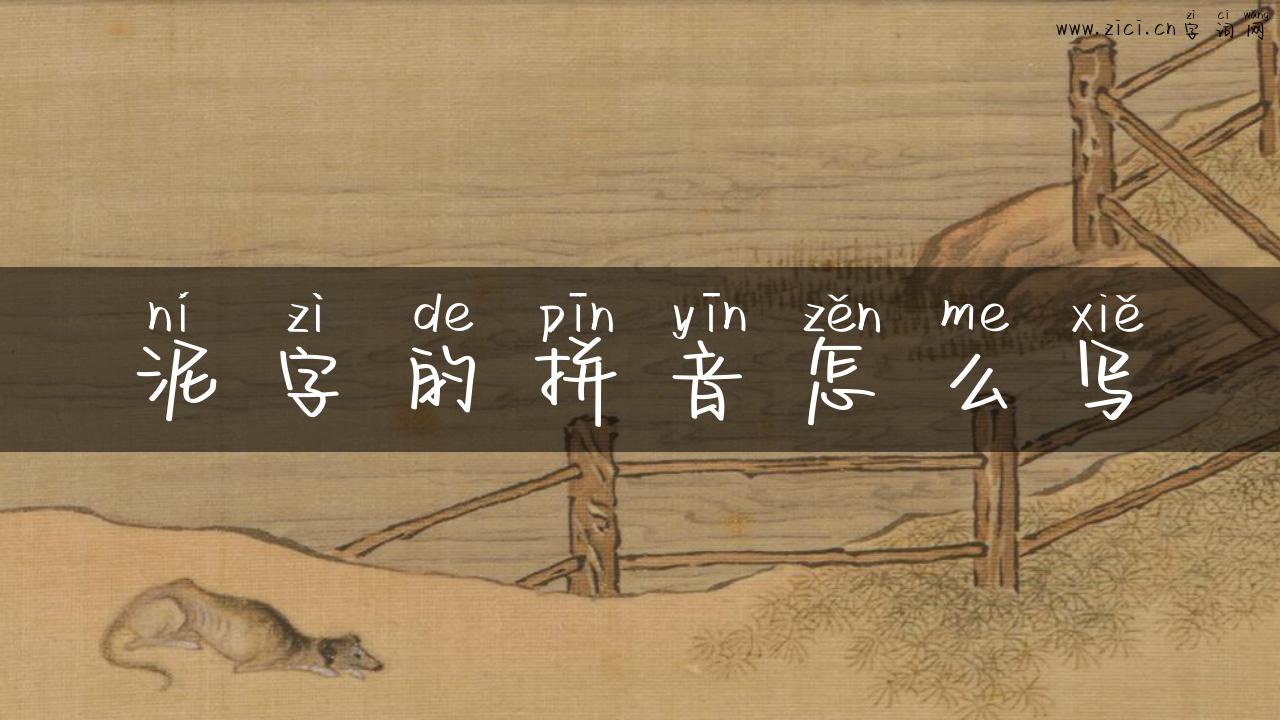 zi ci wang
www.zici.cn字词网
ní zì de pīn yīn zěn me xiě
泥字的拼音怎么写